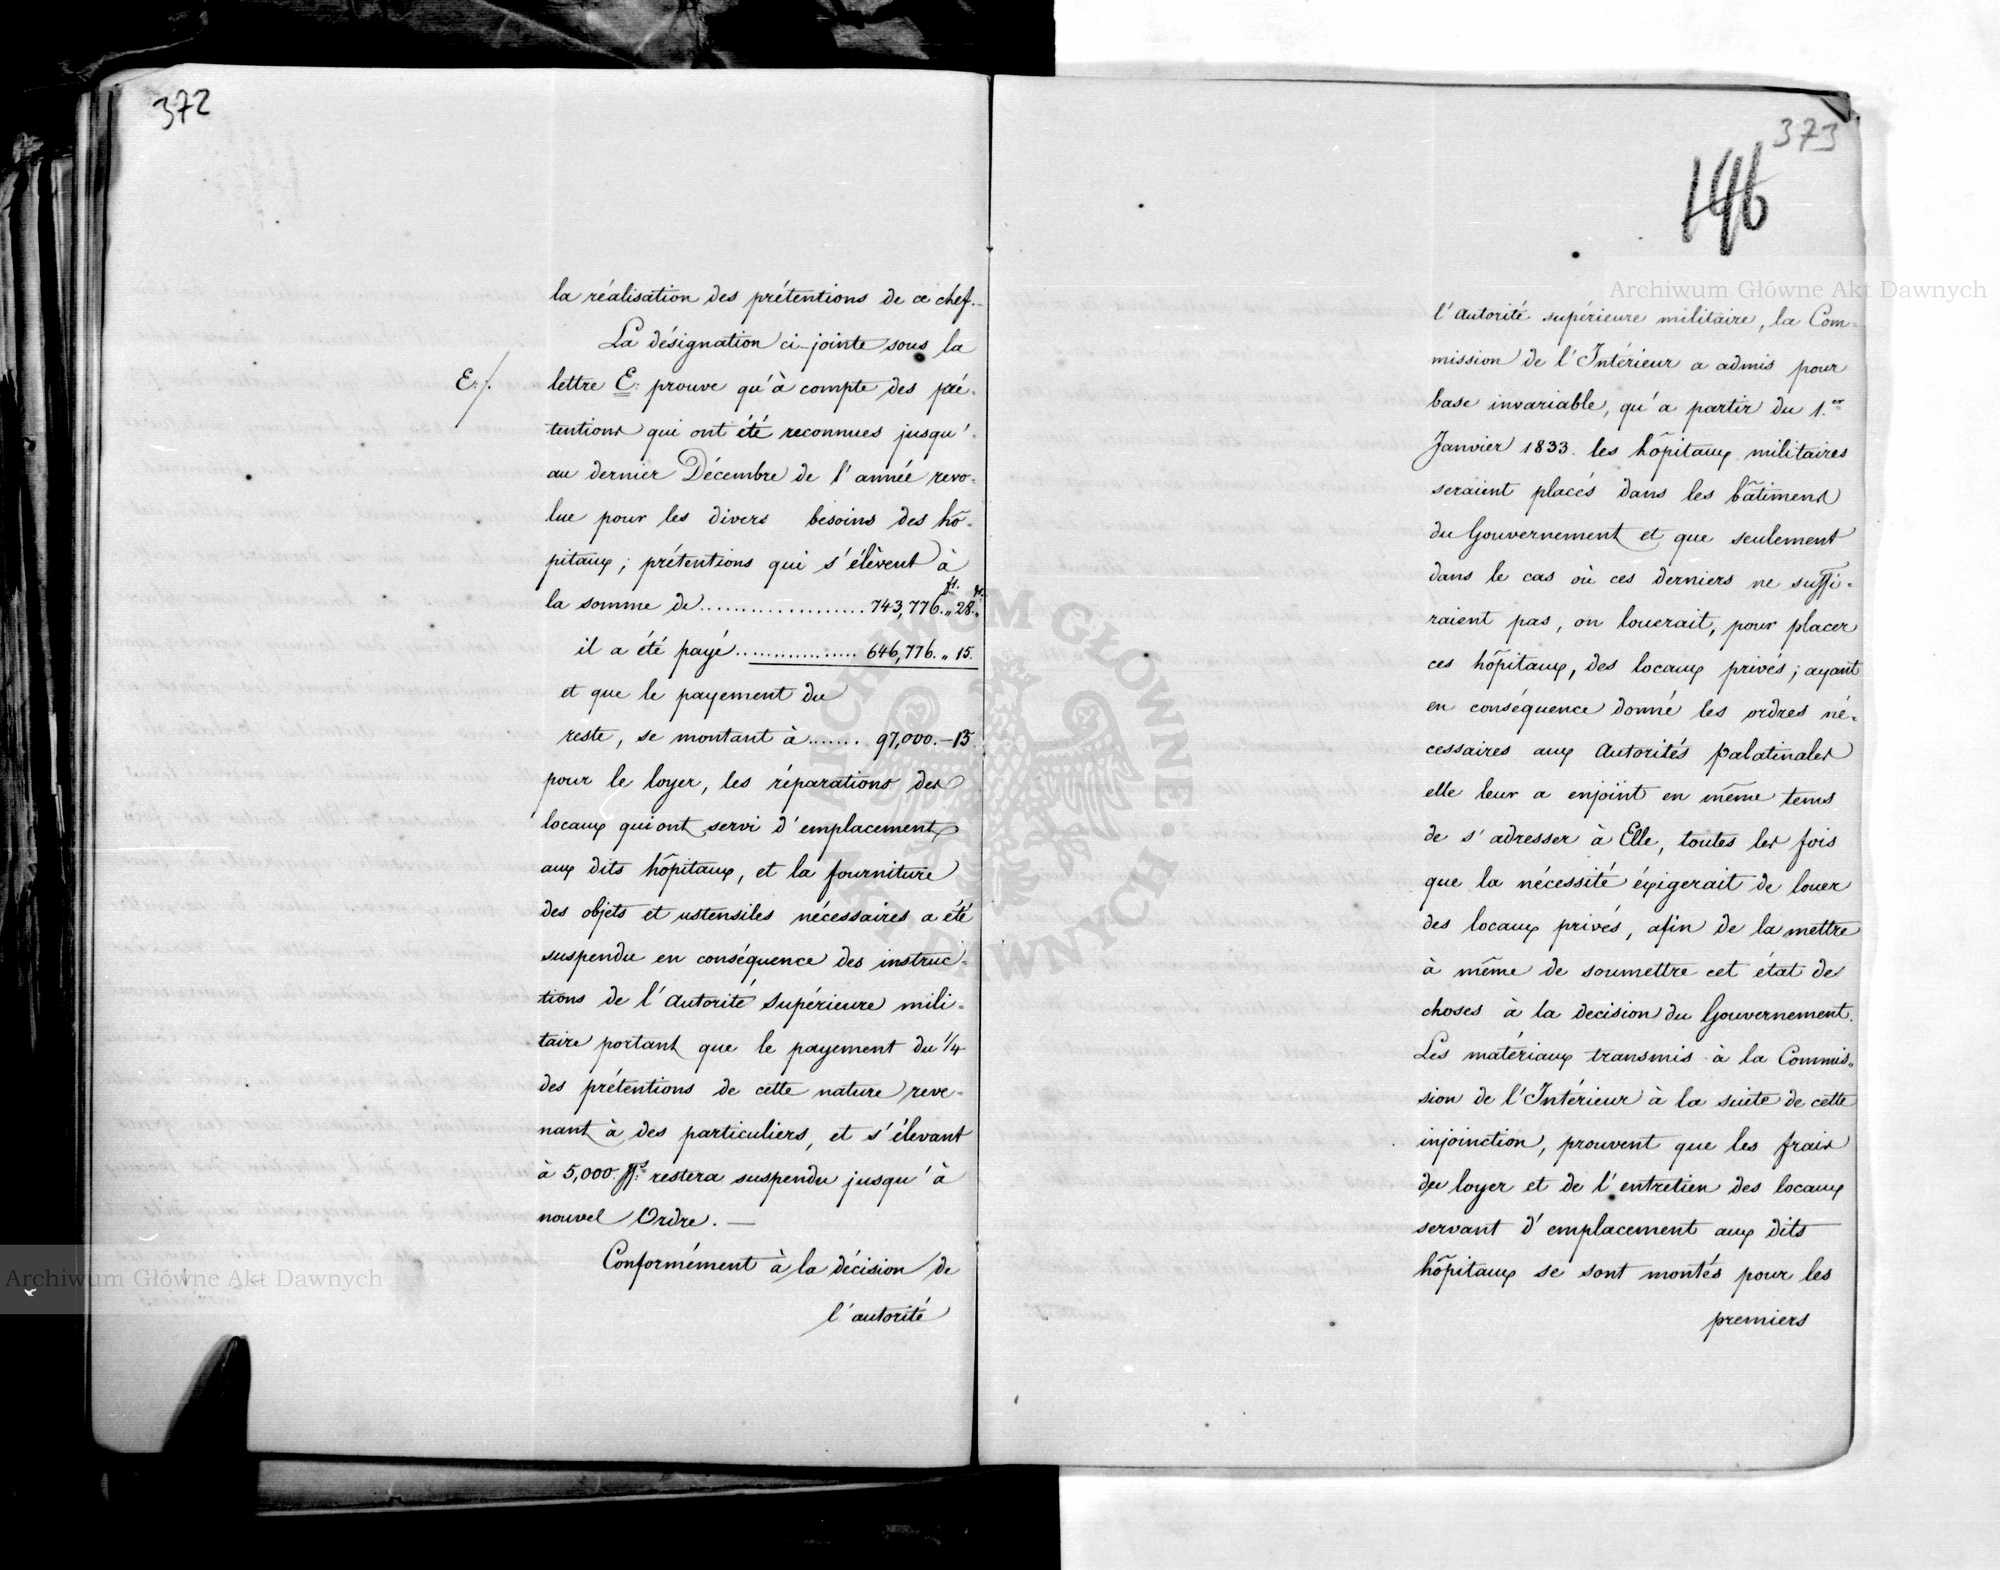 372
la réalisation des prétentions de ce chef.–
La désignation ci-jointe sous la
E./.
lettre E: prouve qu'à compte des pré-
tentions qui ont été reconnues jusqu'-
au dernier Décembre de l'année revo-
lue pour les divers besoins des hô-
pitaux; prétentions qui s'élèvent à
fl. gr.
la somme de .................... 743,776. „ 28. „
il a été payé ................. 646,776. „ 15.
et que le payement du
reste, se montant à ....... 97,000.–13.
pour le loyer, les réparations des
locaux qui ont servi d'emplacement
aux dits hôpitaux, et la fourniture
des objets et ustensiles nécessaires a été
suspendu en conséquence des instruc-
tions de l'Autorité Supérieure mili-
taire portant que le payement du 1/4
des prétentions de cette nature reve-
nant à des particuliers, et s'élevant
à 5,000. restera suspendu jusqu'à
nouvel Ordre. —
Conformément à la décision de
l'autorité
373
146
l'Autorité supérieure militaire, la Com-
mission de l'Intérieur a admis pour
base invariable, qu'a partir du 1.er
Janvier 1833. les hôpitaux militaires
seraient placés dans les bâtimens
du Gouvernement et que seulement
dans le cas où ces derniers ne suffi-
raient pas, on louerait, pour placer
ces hôpitaux, des locaux privés; ayant
en conséquence donné les ordres né-
cessaires aux Autorités palatinales
elle leur a enjoint en même tems
de s'adresser à Elle, toutes les fois
que la nécessité éxigerait de louer
des locaux privés, afin de la mettre
à même de soumettre cet état de
choses à la decision du Gouvernement.
Les matériaux transmis à la Commis„
sion de l'Intérieur à la suite de cette
injoinction, prouvent que les frais
du loyer et de l'entretien des locaux
servant d'emplacement aux dits
hôpitaux se sont montés pour les
premiers
Archiwum Główne Akt Dawnych
Archiwum Główne Akt Dawnych
ARCHIWUM GŁÓWNE AKT DAWNYCH